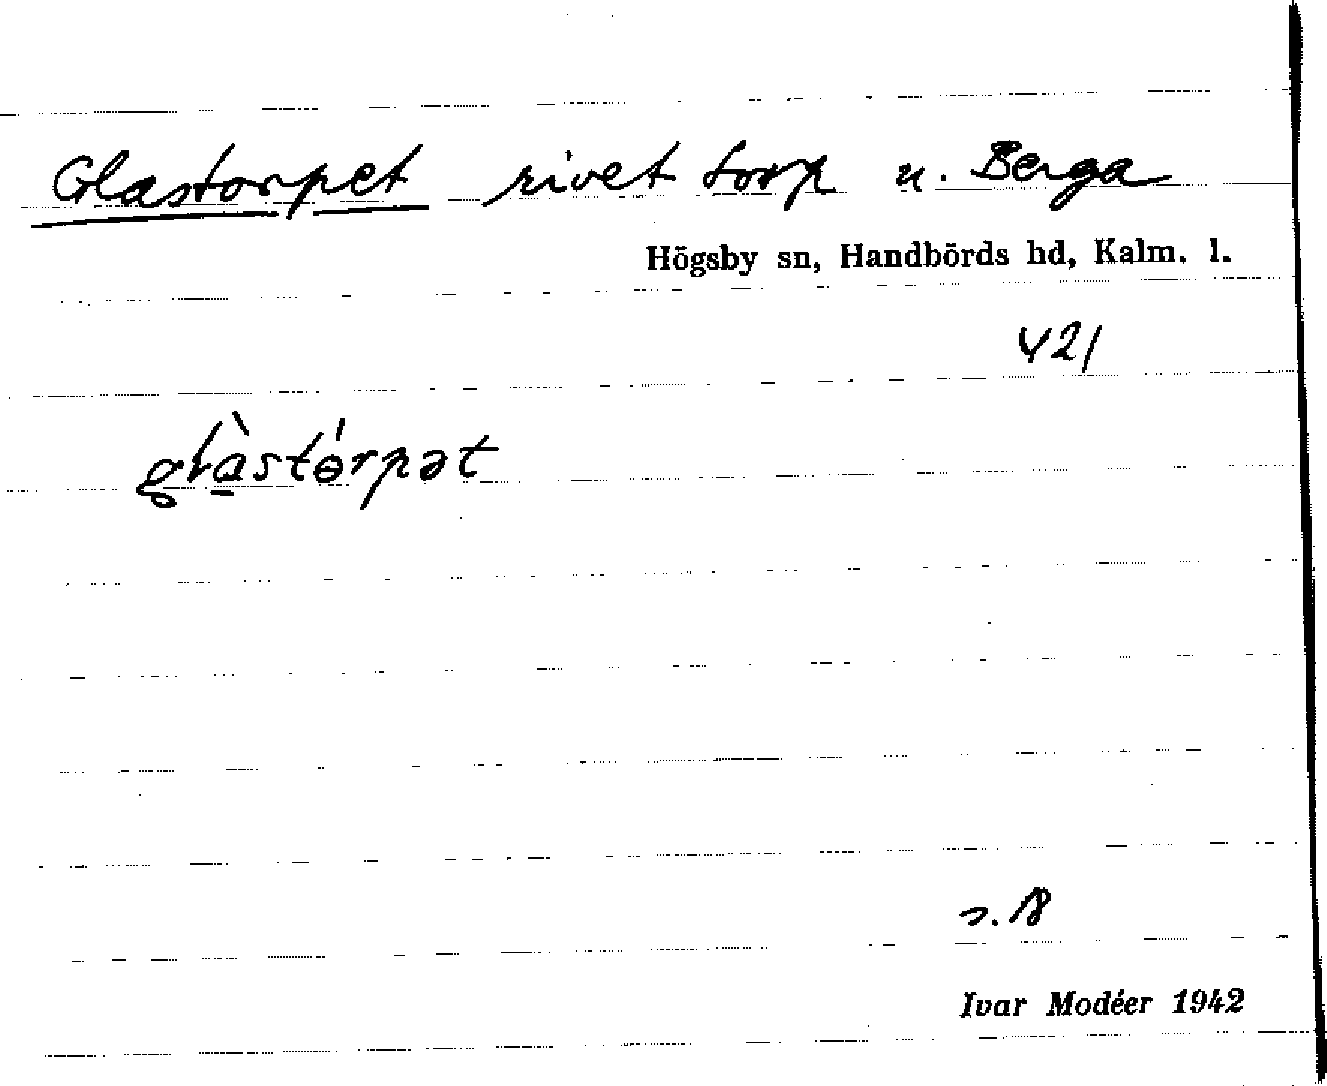 Glastorpet rivet torp u. Berga
Högsby sn, Handbörds hd, Kalm. l.
421
glàstórpət
s. 18
Ivar Modéer 1942